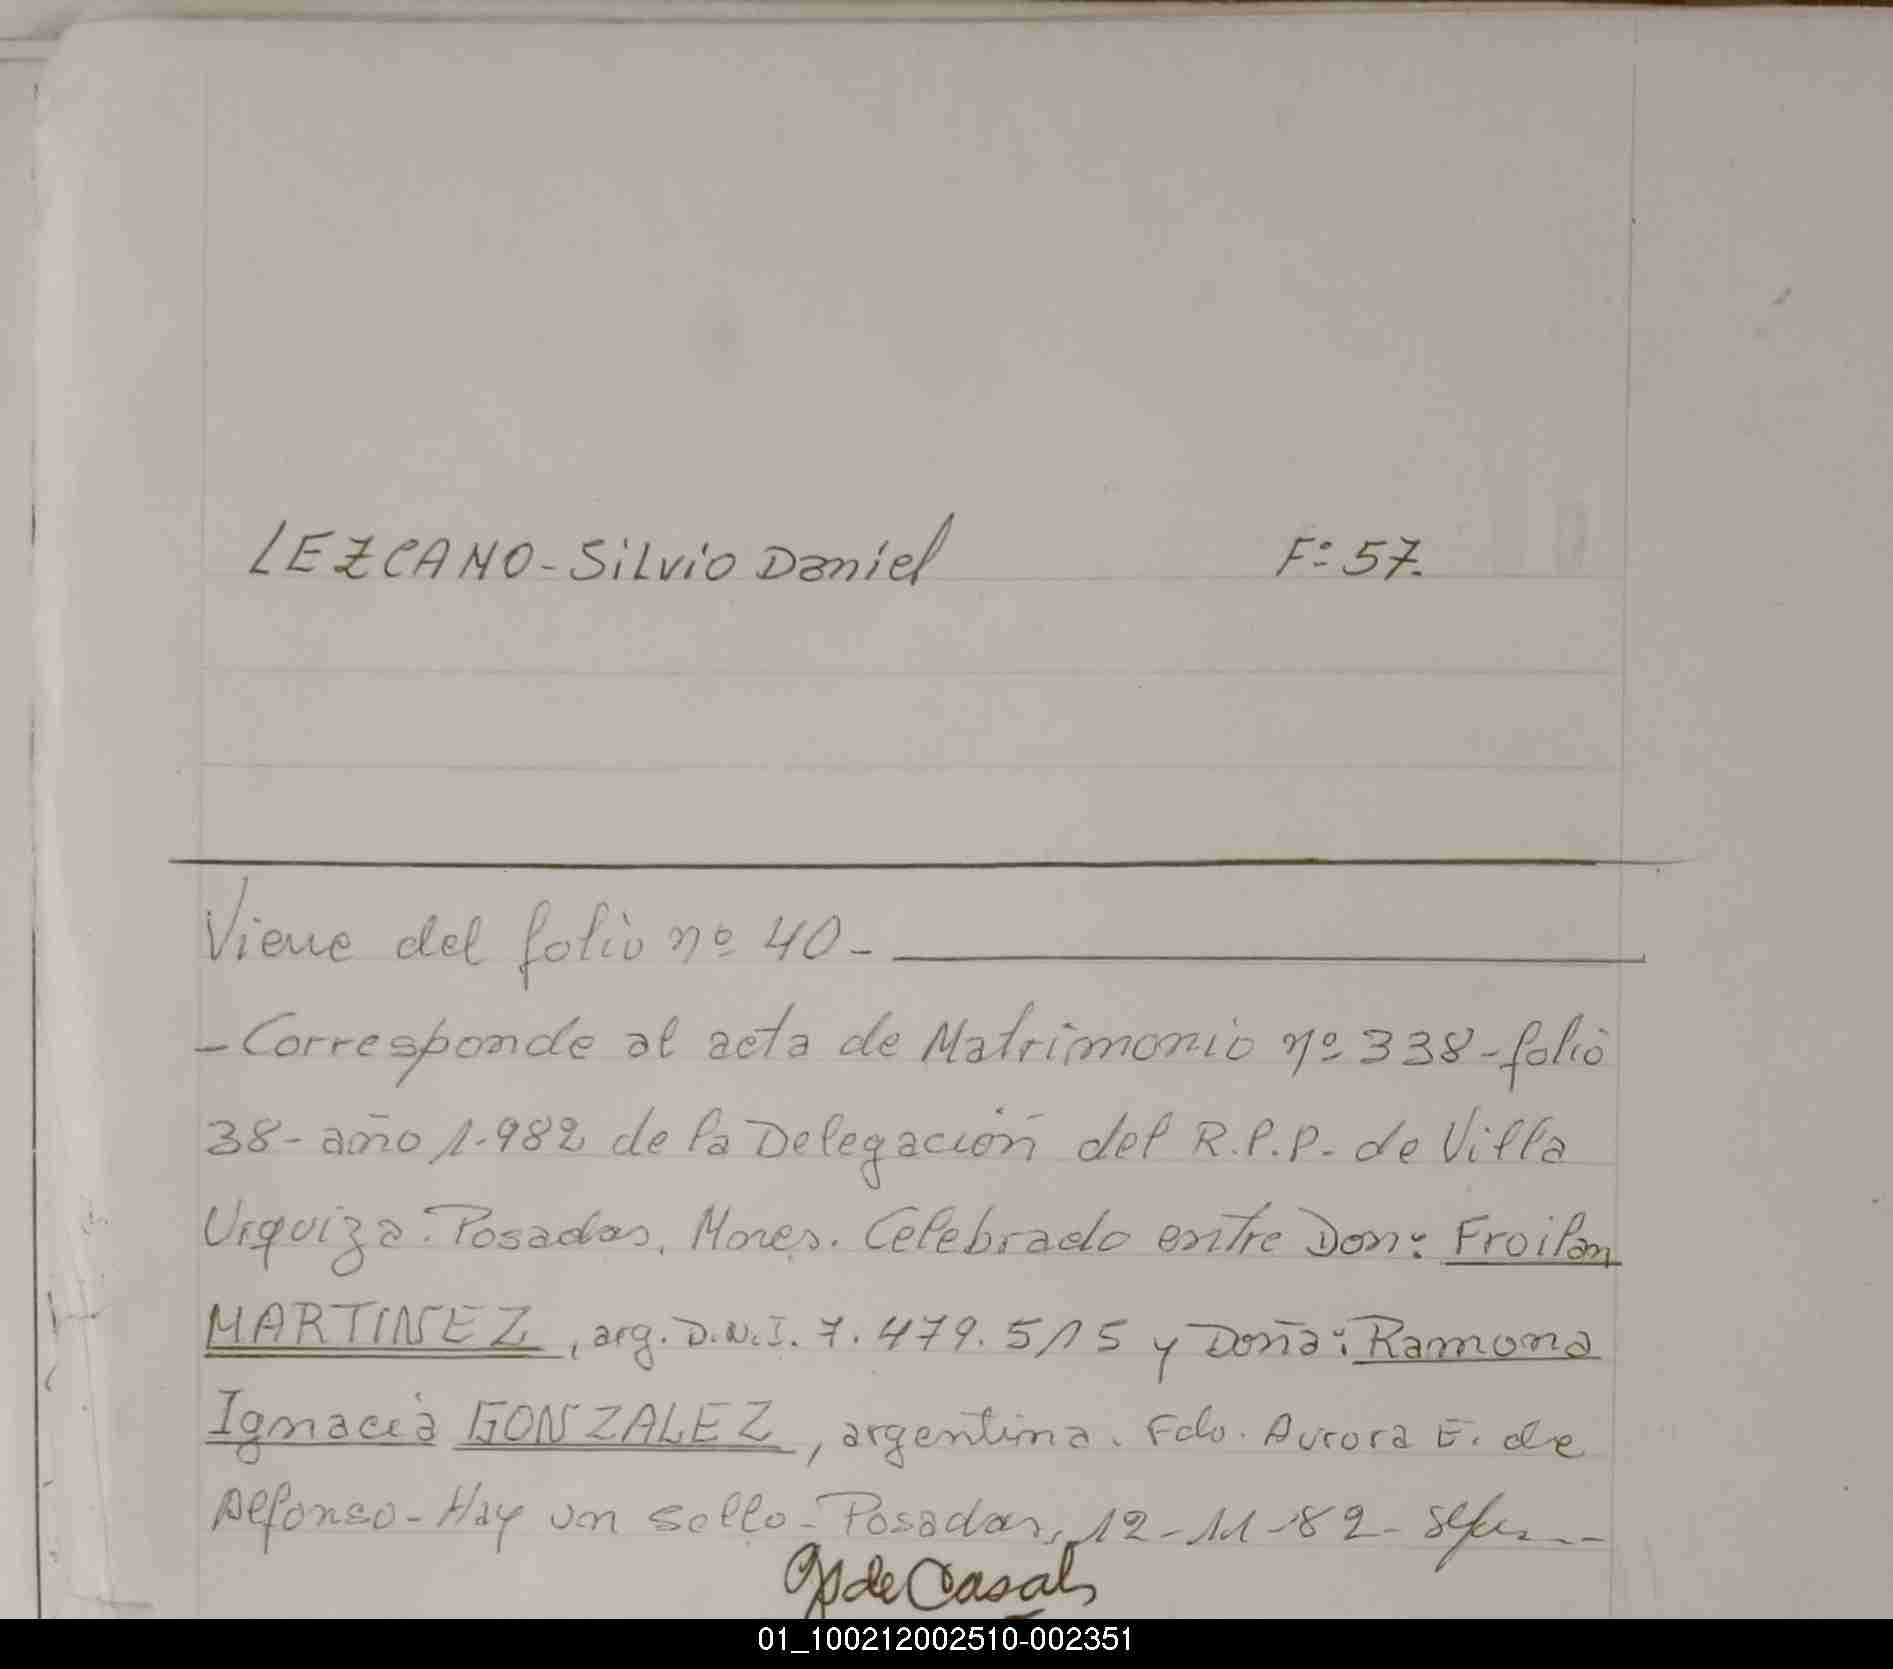 LEZCANO-Silvio Daniel F: 57.
Viene del folio nº 40-
-Corresponde al acta de Matrimonio nº 338-folio
38-año 1.982 de la Delegación del R.P.P. de Villa
Urquiza. Posadas. Mnes. Celebrado entre Don: Froilan
MARTINEZ, arg. D.N.I. 7.479.515 y Doña: Ramona
Ignacia GONZALEZ, argentina. Fdo. Aurora E. de
Alfonso-Hay un sello-Posadas, 12-11-82-
de Casals
01_100212002510-002351